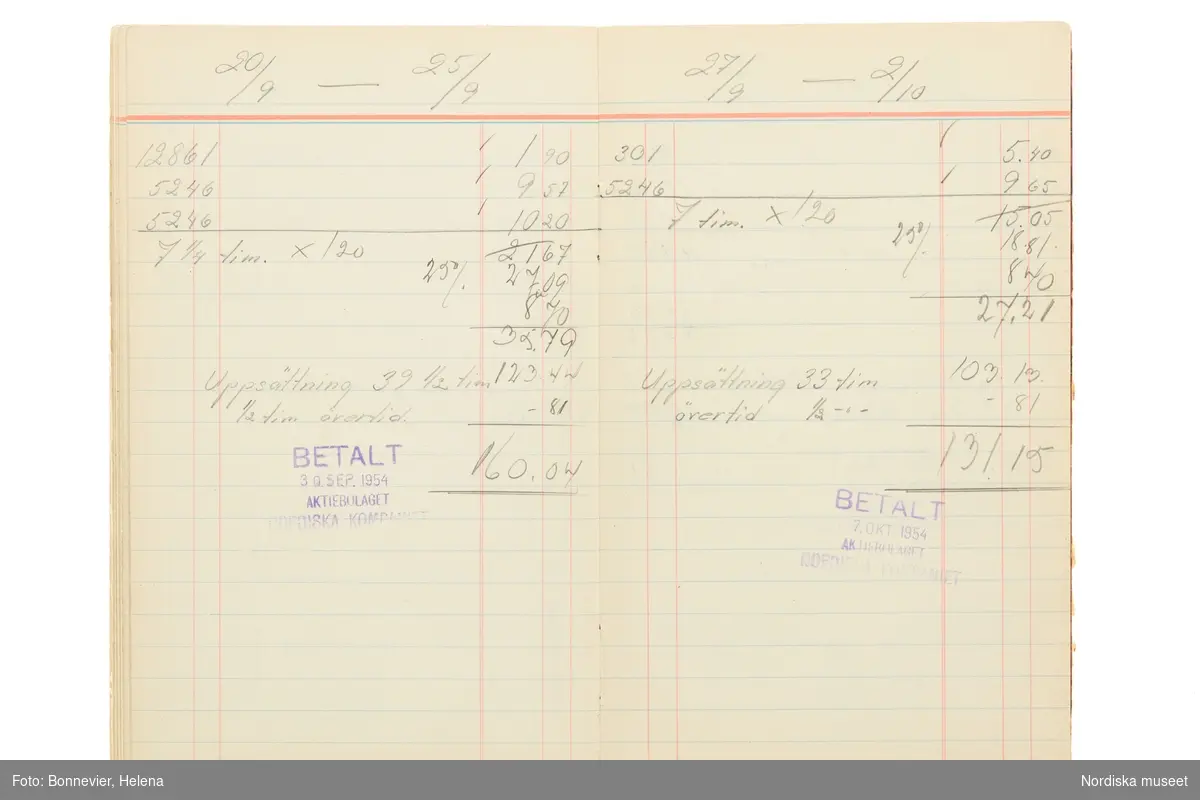 20/9 — 25/9
12861 1 90
5246 9 57
5246 10 20
7 1/4 tim. x 120 21 67
25% 27 09
8 70
35.79
Uppsättning 39 1/2 tim 123.44
1/2 tim övertid. - 81
160.04
BETALT
30. SEP. 1954
AKTIEBOLAGET
NORDISKA KOMPANIET
27/9 — 2/10
301 5.40
5246 9 65
7 tim. x 120 15.05
25% 18 81.
8 40
27.21
Uppsättning 33 tim 103.13.
övertid 1/2 -"- - 81
131.15
BETALT
7. OKT 1954
AKTIEBOLAGET
NORDISKA KOMPANIET
Foto: Bonnevier, Helena
Nordiska museet